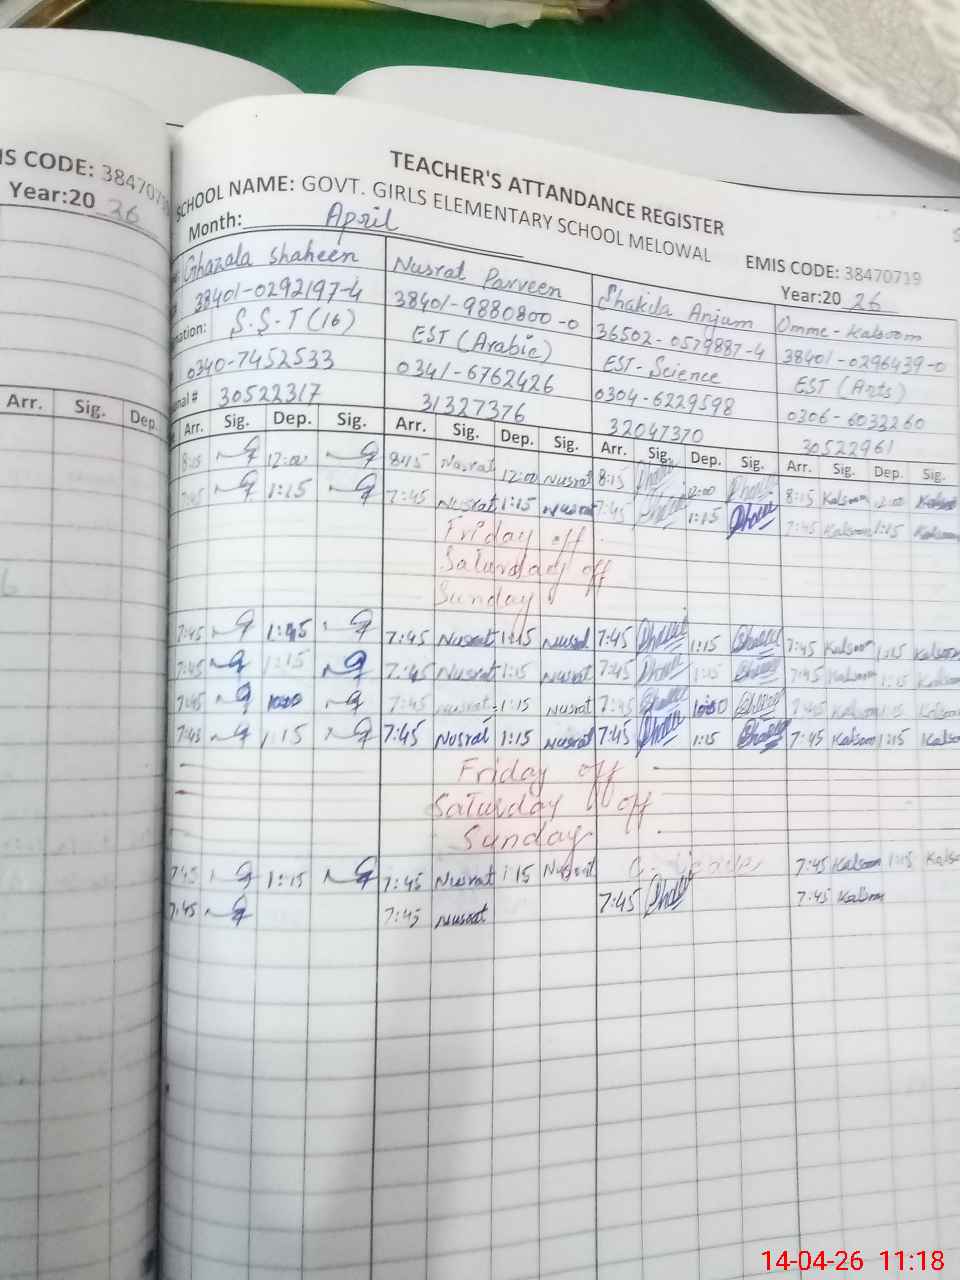 TEACHER'S ATTANDANCE REGISTER
IS CODE: 3847071
SCHOOL NAME: GOVT. GIRLS ELEMENTARY SCHOOL MELOWAL
EMIS CODE: 38470719
Year:20 26
Month: April
Year:20 26
Ghazala Shaheen Nusrat Parveen Shakila Anjum Omme-Kalsoom
38401-0292197-4 38401-9880800-0 36502-0579887-4 38401-0296439-0
nation: S.S.T (16) EST (Arabic) EST-Science EST (Arts)
0340-7452533 0341-6762426 0304-6229598 0306-6032260
onal # 30522317 31327376 32047370 30522961
Arr. Sig. Dep.
Arr. Sig. Dep. Sig. Arr. Sig. Dep. Sig. Arr. Sig. Dep. Sig. Arr. Sig. Dep. Sig.
8:15 12:00 8:15 Nusrat 12:00 Nusrat 8:15 12:00 8:15 Kalsoom 12:00 Kalsoom
7:45 1:15 7:45 Nusrat 1:15 Nusrat 7:45 1:15 7:45 Kalsoom 1:15 Kalsoom
Friday off
Saturday off
Sunday
7:45 1:45 7:45 Nusrat 1:15 Nusrat 7:45 1:15 7:45 Kalsoom 1:15 Kalsoom
7:45 1:15 7:45 Nusrat 1:15 Nusrat 7:45 1:15 7:45 Kalsoom 1:15 Kalsoom
7:45 7:45 Nusrat 1:15 Nusrat 7:45 7:45 Kalsoom 1:15 Kalsoom
7:45 1:15 7:45 Nusrat 1:15 Nusrat 7:45 1:15 7:45 Kalsoom 1:15 Kalso
Friday off
Saturday off
Sunday
7:45 1:15 7:45 Nusrat 1:15 Nusrat C. Leave 7:45 Kalsoom 1:15 Kalso
7:45 7:45 Nusrat 7:45 7:45 Kalsoom
14-04-26 11:18